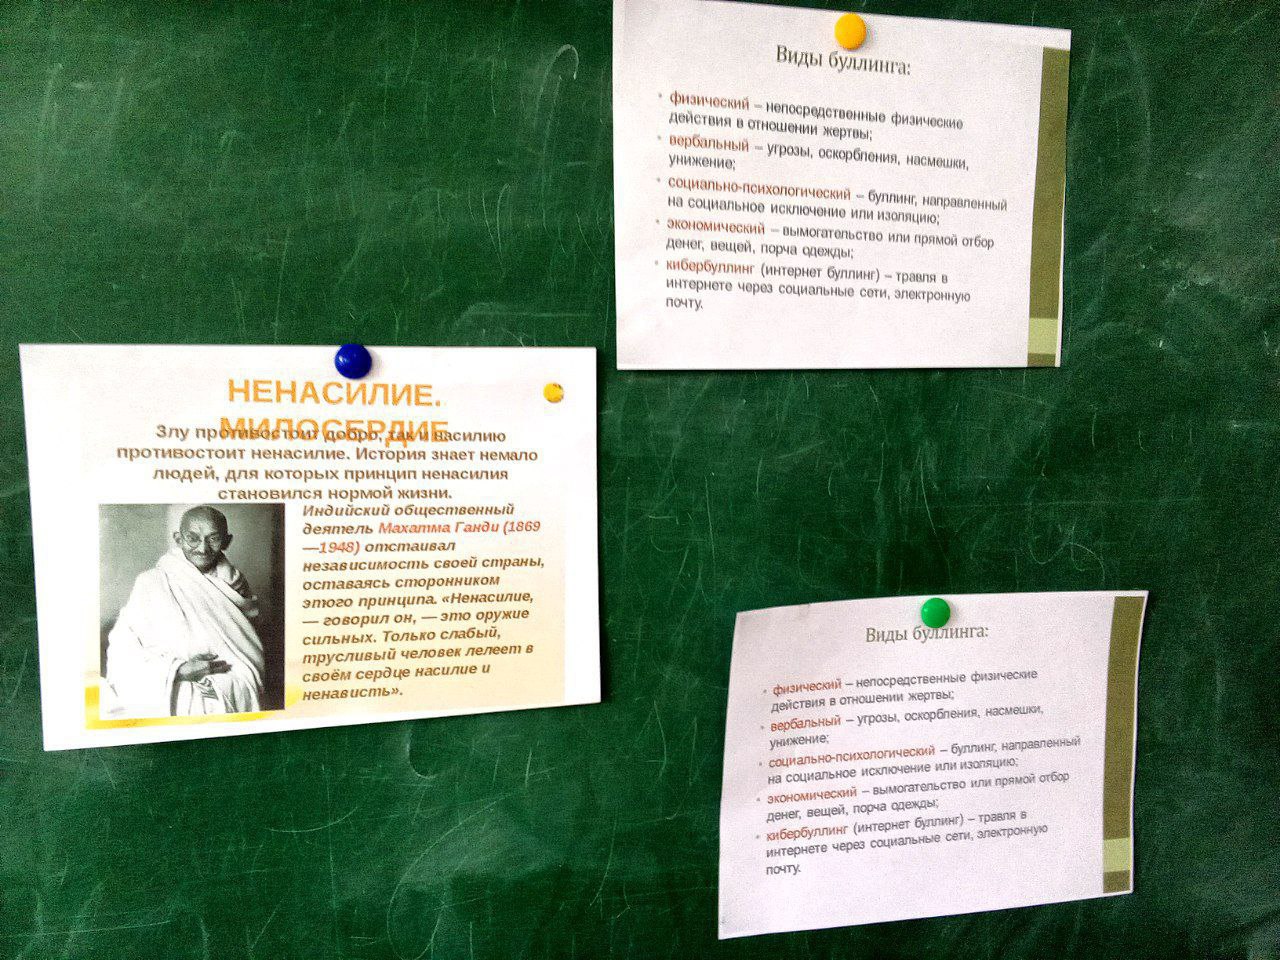 Виды буллинга:
физический – непосредственные физические
действия в отношении жертвы;
вербальный – угрозы, оскорбления, насмешки,
унижение;
социально-психологический – буллинг, направленный
на социальное исключение или изоляцию;
экономический – вымогательство или прямой отбор
денег, вещей, порча одежды;
кибербуллинг (интернет буллинг) – травля в
интернете через социальные сети, электронную
почту.
НЕНАСИЛИЕ.
МИЛОСЕРДИЕ
Злу противостоит добро, так и насилию
противостоит ненасилие. История знает немало
людей, для которых принцип ненасилия
становился нормой жизни.
Индийский общественный
деятель Махатма Ганди (1869
—1948) отстаивал
независимость своей страны,
оставаясь сторонником
этого принципа. «Ненасилие,
— говорил он, — это оружие
сильных. Только слабый,
трусливый человек лелеет в
своём сердце насилие и
ненависть».
Виды буллинга:
физический – непосредственные физические
действия в отношении жертвы;
вербальный – угрозы, оскорбления, насмешки,
унижение;
социально-психологический – буллинг, направленный
на социальное исключение или изоляцию;
экономический – вымогательство или прямой отбор
денег, вещей, порча одежды;
кибербуллинг (интернет буллинг) – травля в
интернете через социальные сети, электронную
почту.